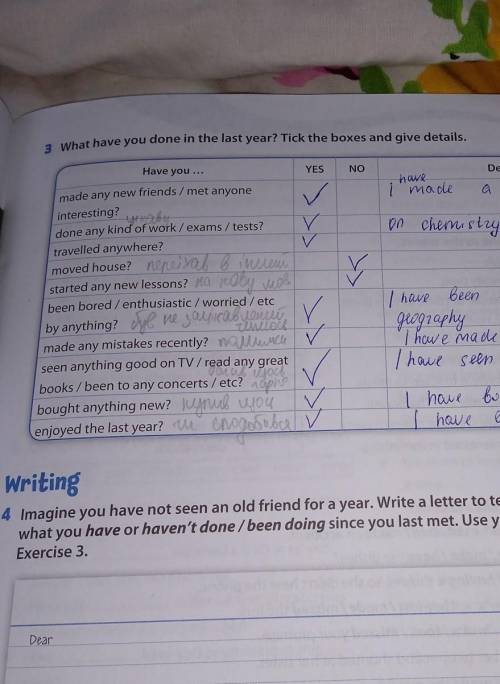 3 What have you done in the last year? Tick the boxes and give details.
Have you ... YES NO De
made any new friends / met anyone
interesting?
I have made a
done any kind of work / exams / tests? on chemistry
travelled anywhere?
moved house? переїхав в інший
started any new lessons? на нову мов
been bored / enthusiastic / worried / etc I have been
by anything? був не зацікавлений geography
made any mistakes recently? I have made
seen anything good on TV / read any great I have seen
books / been to any concerts / etc?
bought anything new? купив щось I have bo
enjoyed the last year? чи сподобався I have e
Writing
4 Imagine you have not seen an old friend for a year. Write a letter to te
what you have or haven't done / been doing since you last met. Use y
Exercise 3.
Dear